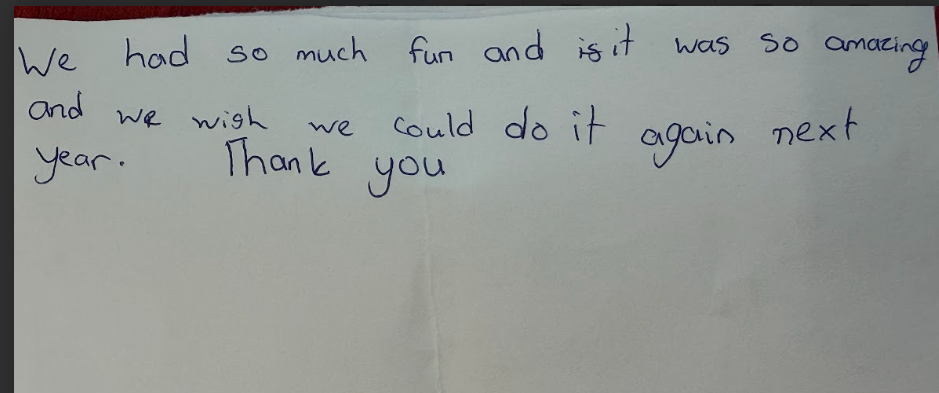 We had so much fun and is it was so amazing
and we wish we could do it again next
year. Thank you